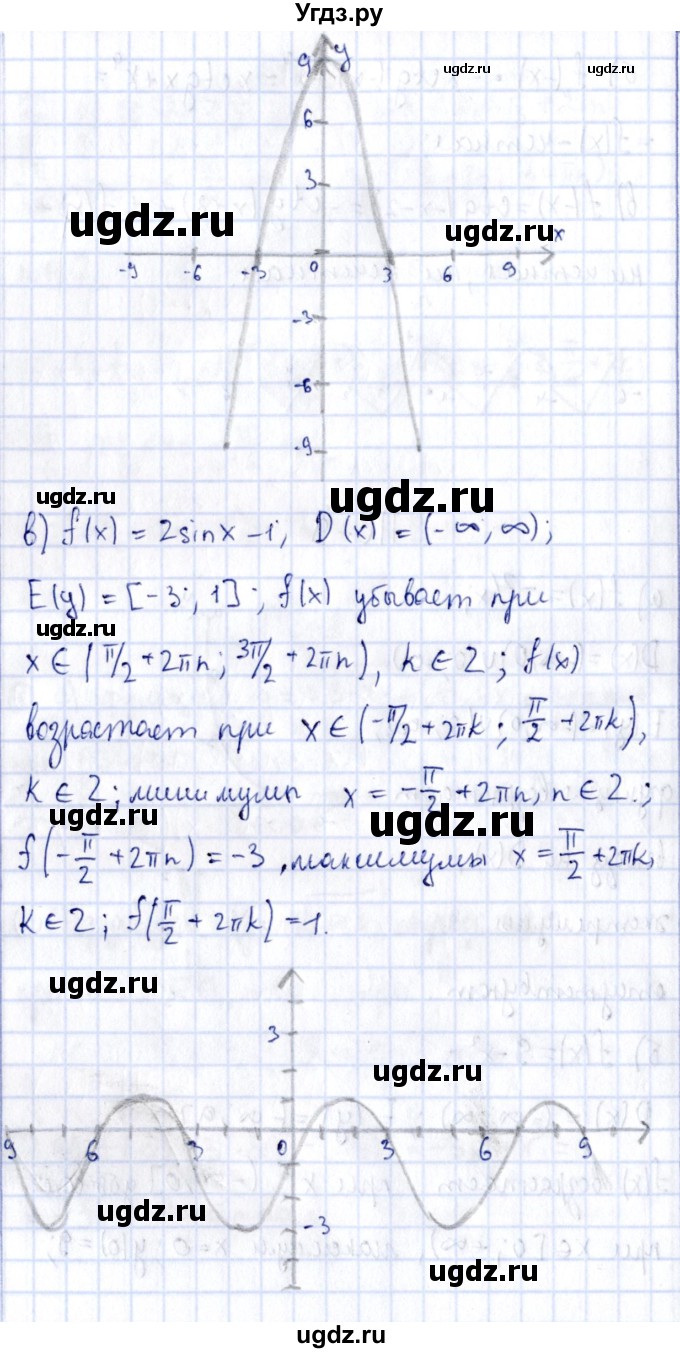 Угдз.ру
9 y
ugdz.ru ugdz.ru
6
3
ugdz.ru ugdz.ru x
-9 -6 -3 0 3 6 9
-3
-6
-9
ugdz.ru ugdz.ru
в) f(x) = 2sinx - 1; D(x) = (-∞; ∞);
E(y) = [-3; 1]; f(x) убывает при
ugdz.ru
x ∈ (π/2 + 2πn; 3π/2 + 2πn), k ∈ Z; f(x)
возрастает при x ∈ (-π/2 + 2πk; π/2 + 2πk),
k ∈ Z; минимумы x = -π/2 + 2πn, n ∈ Z.;
ugdz.ru ugdz.ru
f(-π/2 + 2πn) = -3, максимумы x = π/2 + 2πk,
k ∈ Z; f(π/2 + 2πk) = 1.
ugdz.ru
3
ugdz.ru
9 6 3 0 3 6 9
ugdz.ru -3
ugdz.ru
ugdz.ru